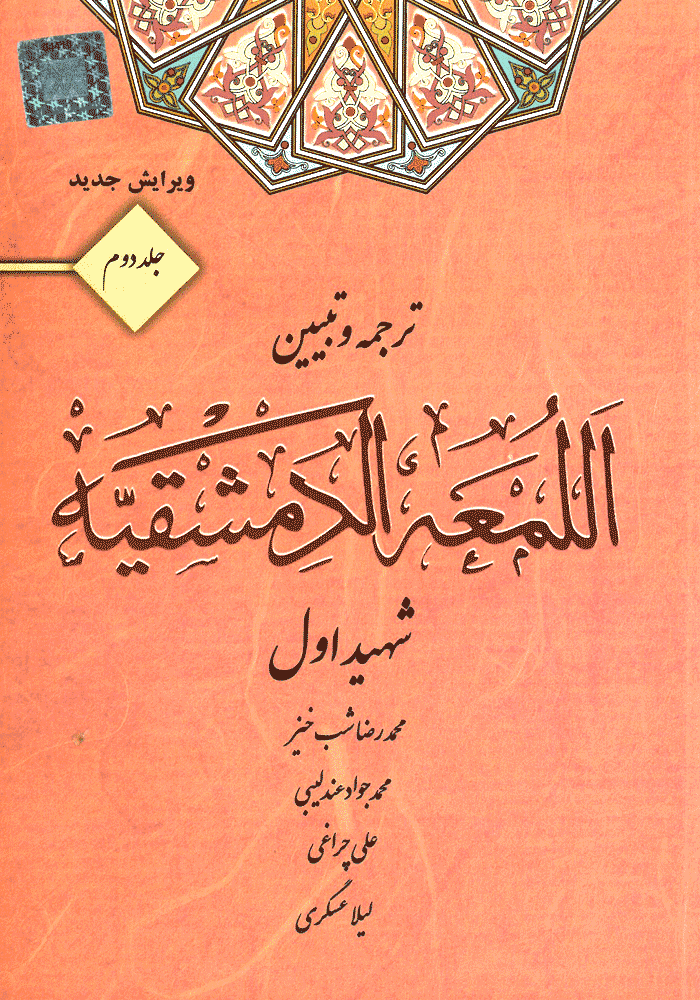 ویرایش جدید
جلد دوم
ترجمه و تبیین
اَللُّمعَة الدِمَشقیَّه
شهید اول
محمدرضا شب خیز
محمدجواد عندلیبی
علی چراغی
لیلا عسگری